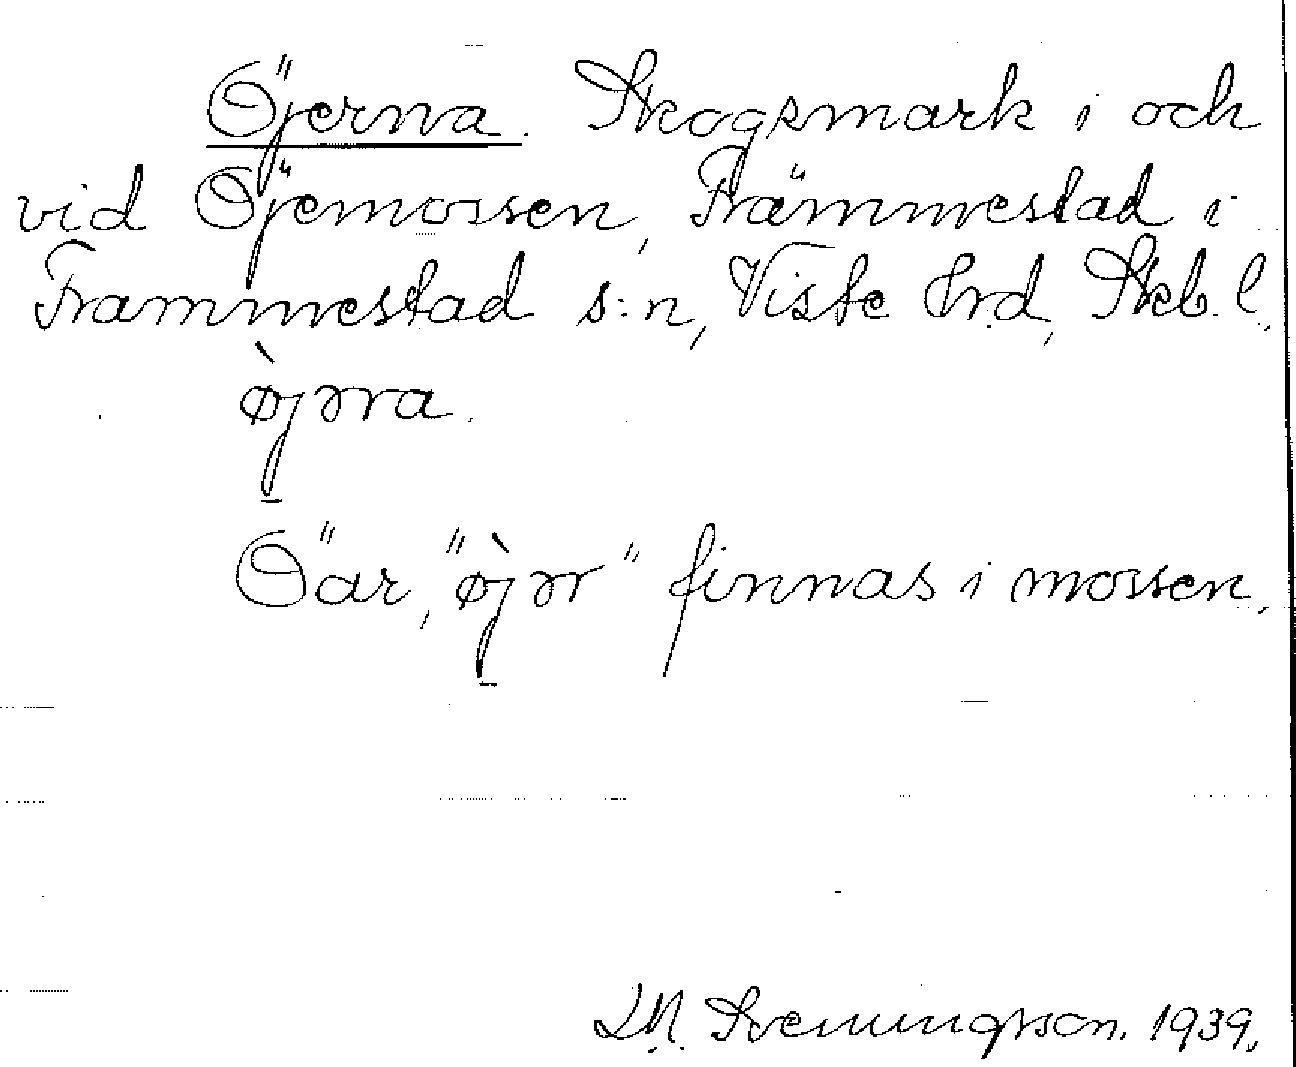 Öjerna. Skogsmark i och
vid Öjemossen, Främmestad i
Frammestad s:n, Viste Hrd, Skb. l.
ø̀jəra.
Öar, "ø̀jər" finnas i mossen.
D.N. Svenningsson. 1939.